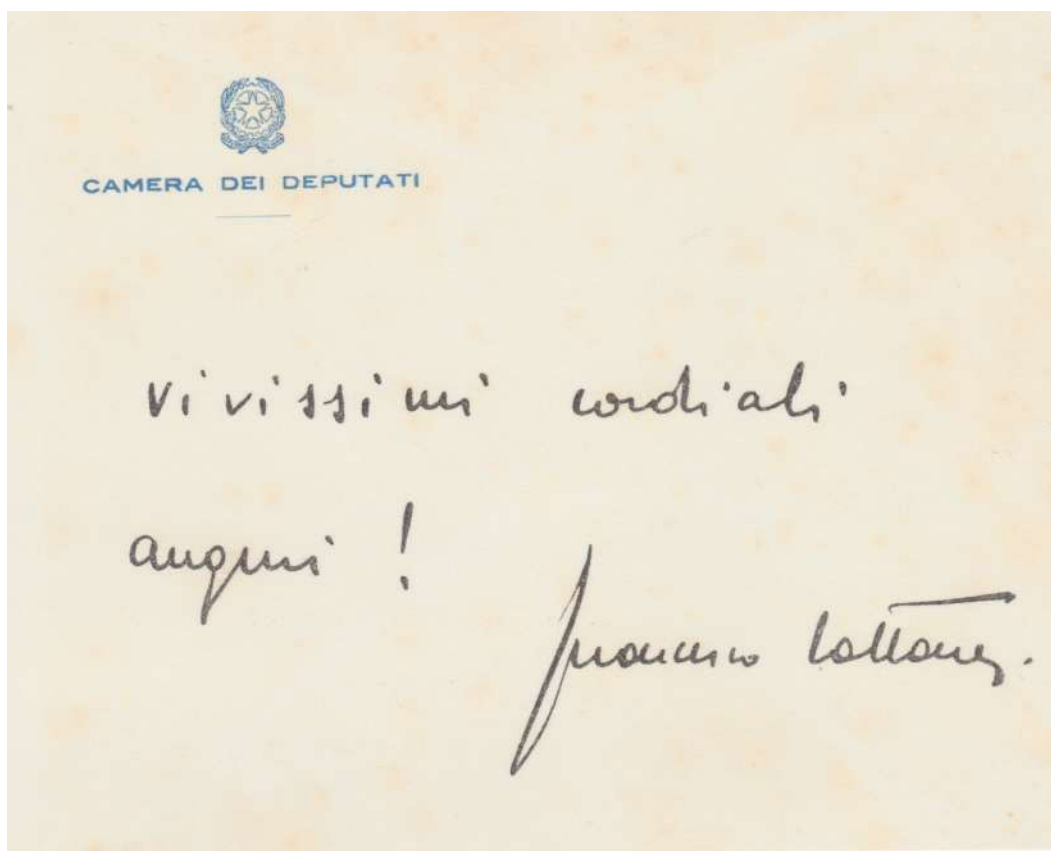 CAMERA DEI DEPUTATI
vivissimi cordiali
auguri !
Francesco Cattanei.